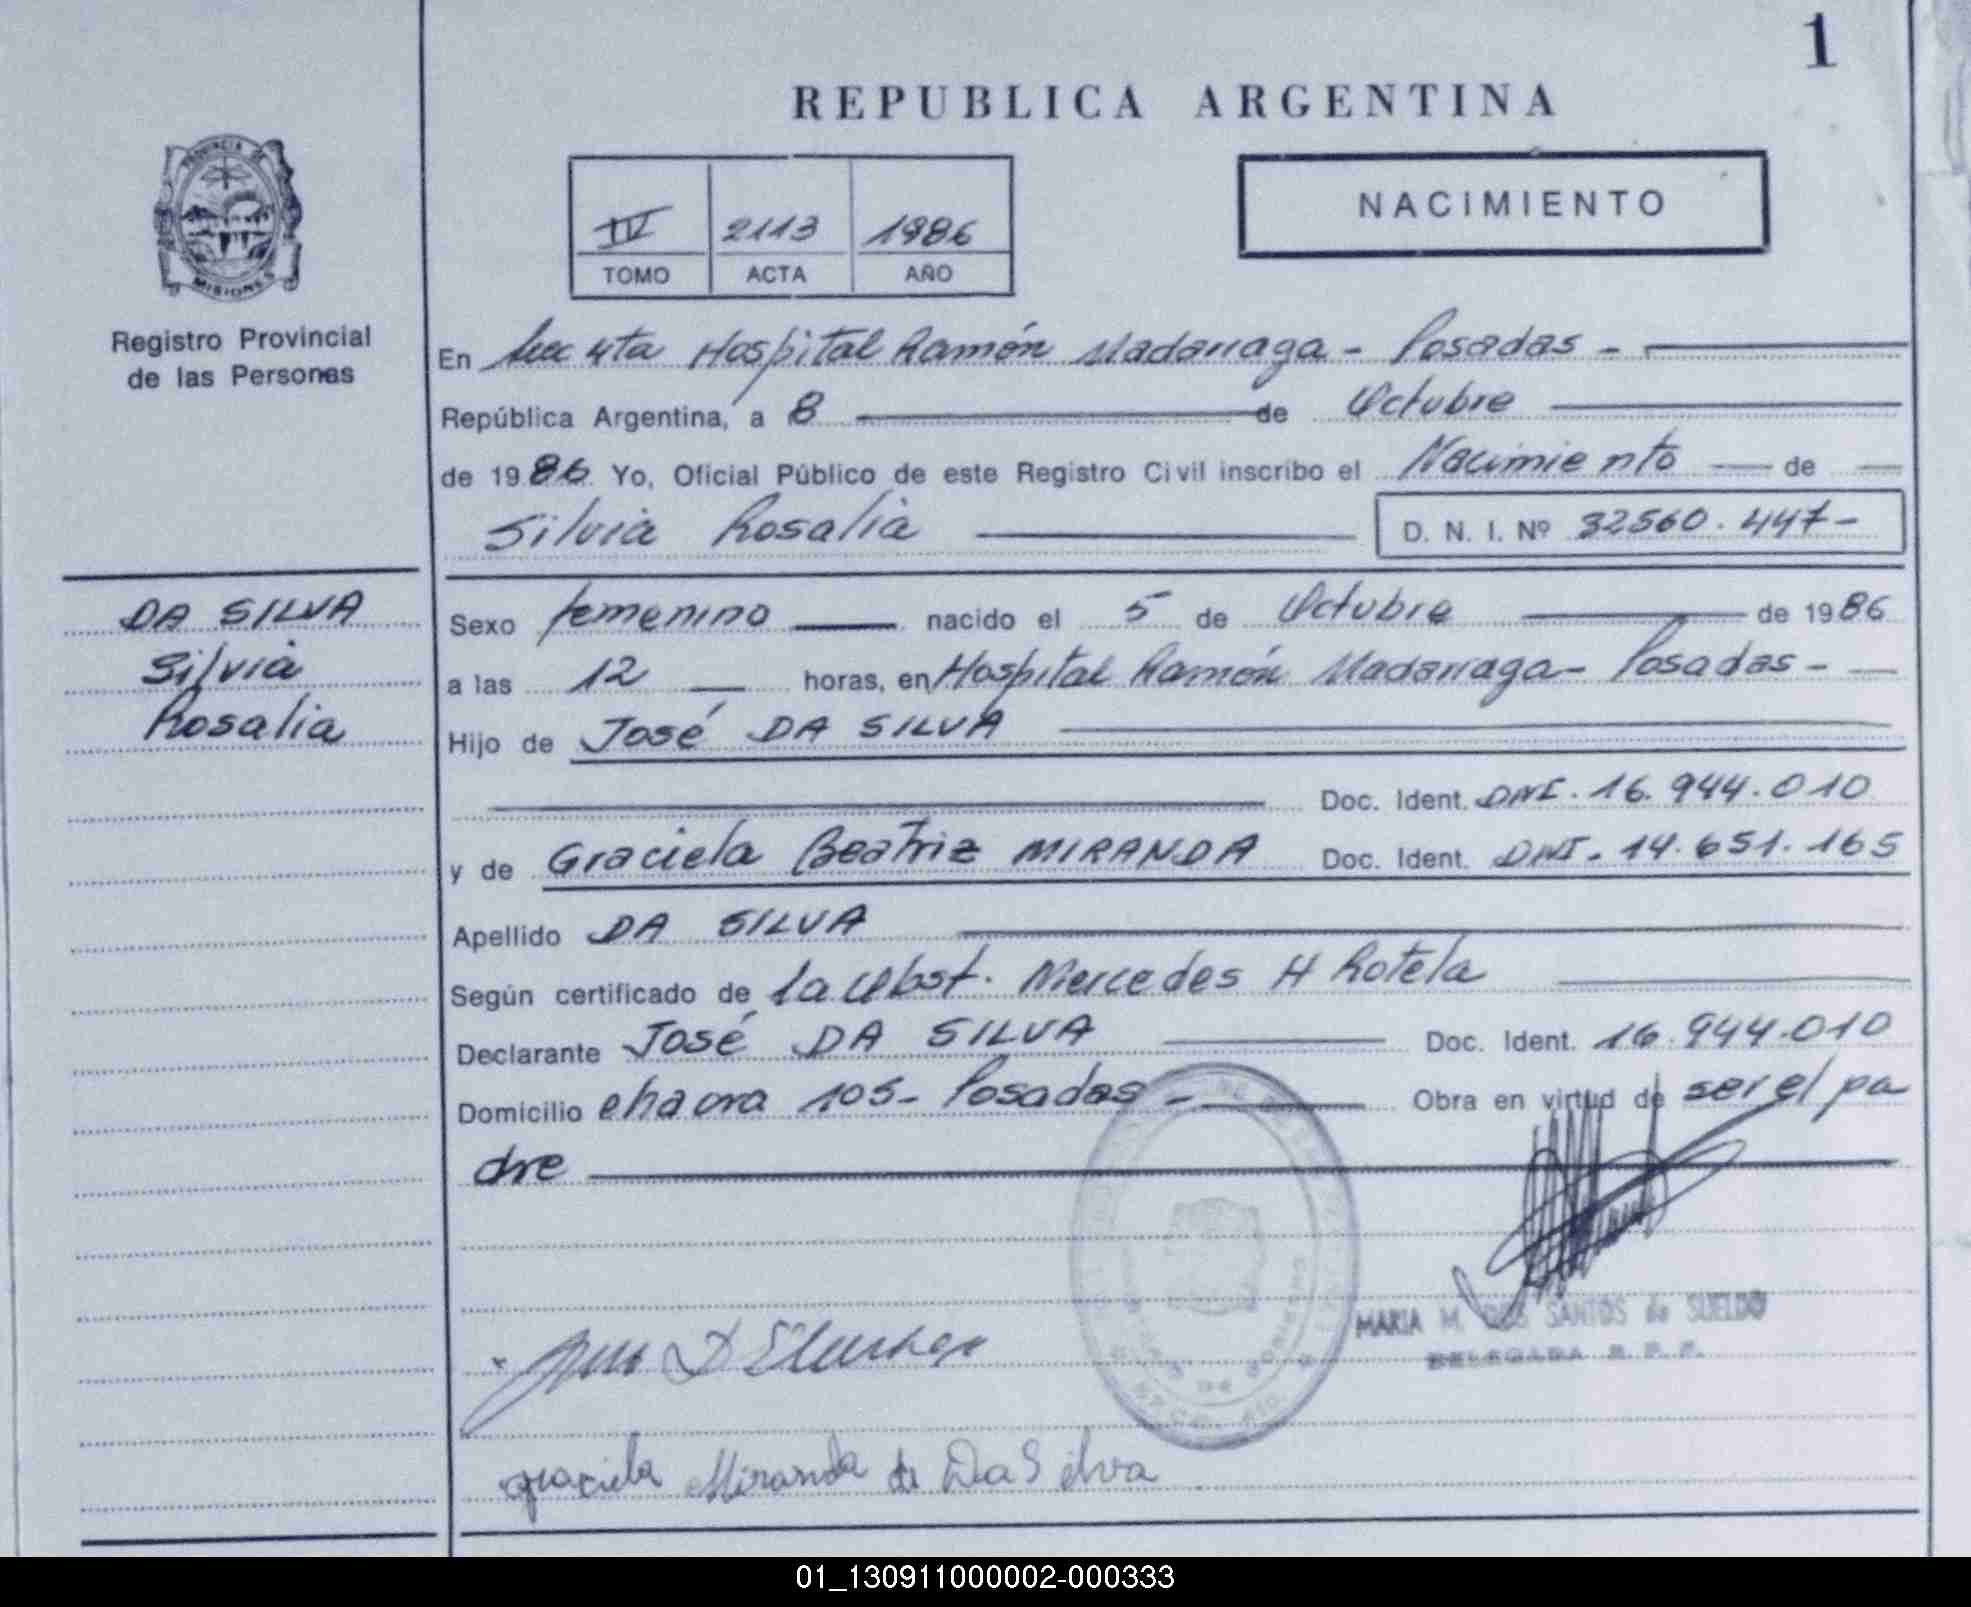 1
REPUBLICA ARGENTINA
PROVINCIA DE
MISIONES
Registro Provincial
de las Personas
IV 2113 1986
TOMO ACTA AÑO
NACIMIENTO
En Secc 4ta Hospital Ramón Madariaga - Posadas -
República Argentina, a 8 de Octubre
de 1986 Yo, Oficial Público de este Registro Civil inscribo el Nacimiento de
Silvia Rosalia D. N. I. Nº 32560.447-
DA SILVA
Silvia
Rosalia
Sexo femenino nacido el 5 de Octubre de 1986
a las 12 horas, en Hospital Ramón Madariaga - Posadas -
Hijo de José DA SILVA
Doc. Ident. DNI. 16.944.010
y de Graciela Beatriz MIRANDA Doc. Ident. DNI. 14.651.165
Apellido DA SILVA
Según certificado de la Obst. Mercedes H Rotela
Declarante José DA SILVA Doc. Ident. 16.944.010
Domicilio chacra 105- Posadas - Obra en virtud de ser el pa
dre
MARIA M. DOS SANTOS de SUELDO
DELEGADA R. P. P.
graciela Miranda de Da Silva
01_130911000002-000333